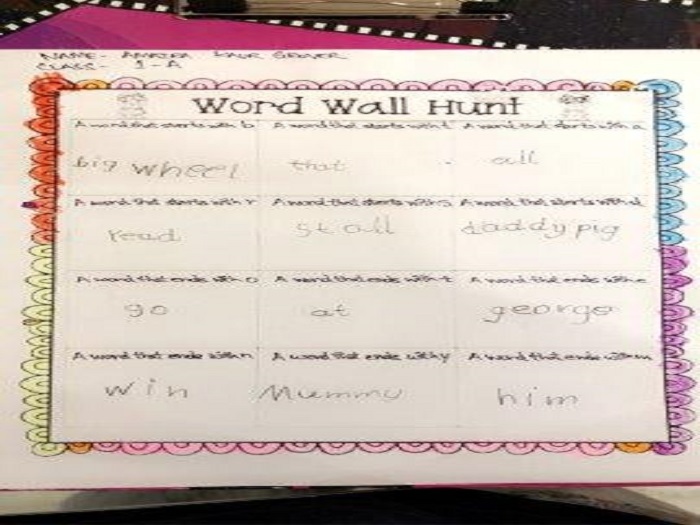 NAME- AMAIRA KAUR GROVER
CLASS- 1-A
Word Wall Hunt
A word that starts with b A word that starts with t A word that starts with a
big wheel that all
A word that starts with r A word that starts with s A word that starts with d
read stall daddy pig
A word that ends with o A word that ends with t A word that ends with e
go at george
A word that ends with n A word that ends with y A word that ends with m
win Mummy him